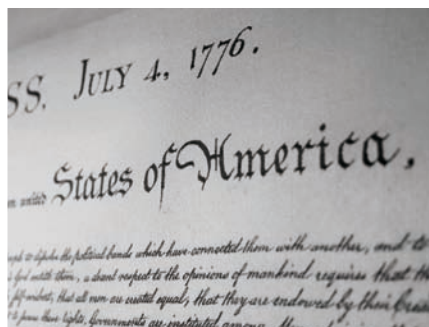 SS. JULY 4, 1776.
united States of America,
to dissolve the political bands which have connected them with another, and to
God entitle them, a decent respect to the opinions of mankind requires that th
self-evident, that all men are created equal, that they are endowed by their Crea
to secure these rights, Governments are instituted among